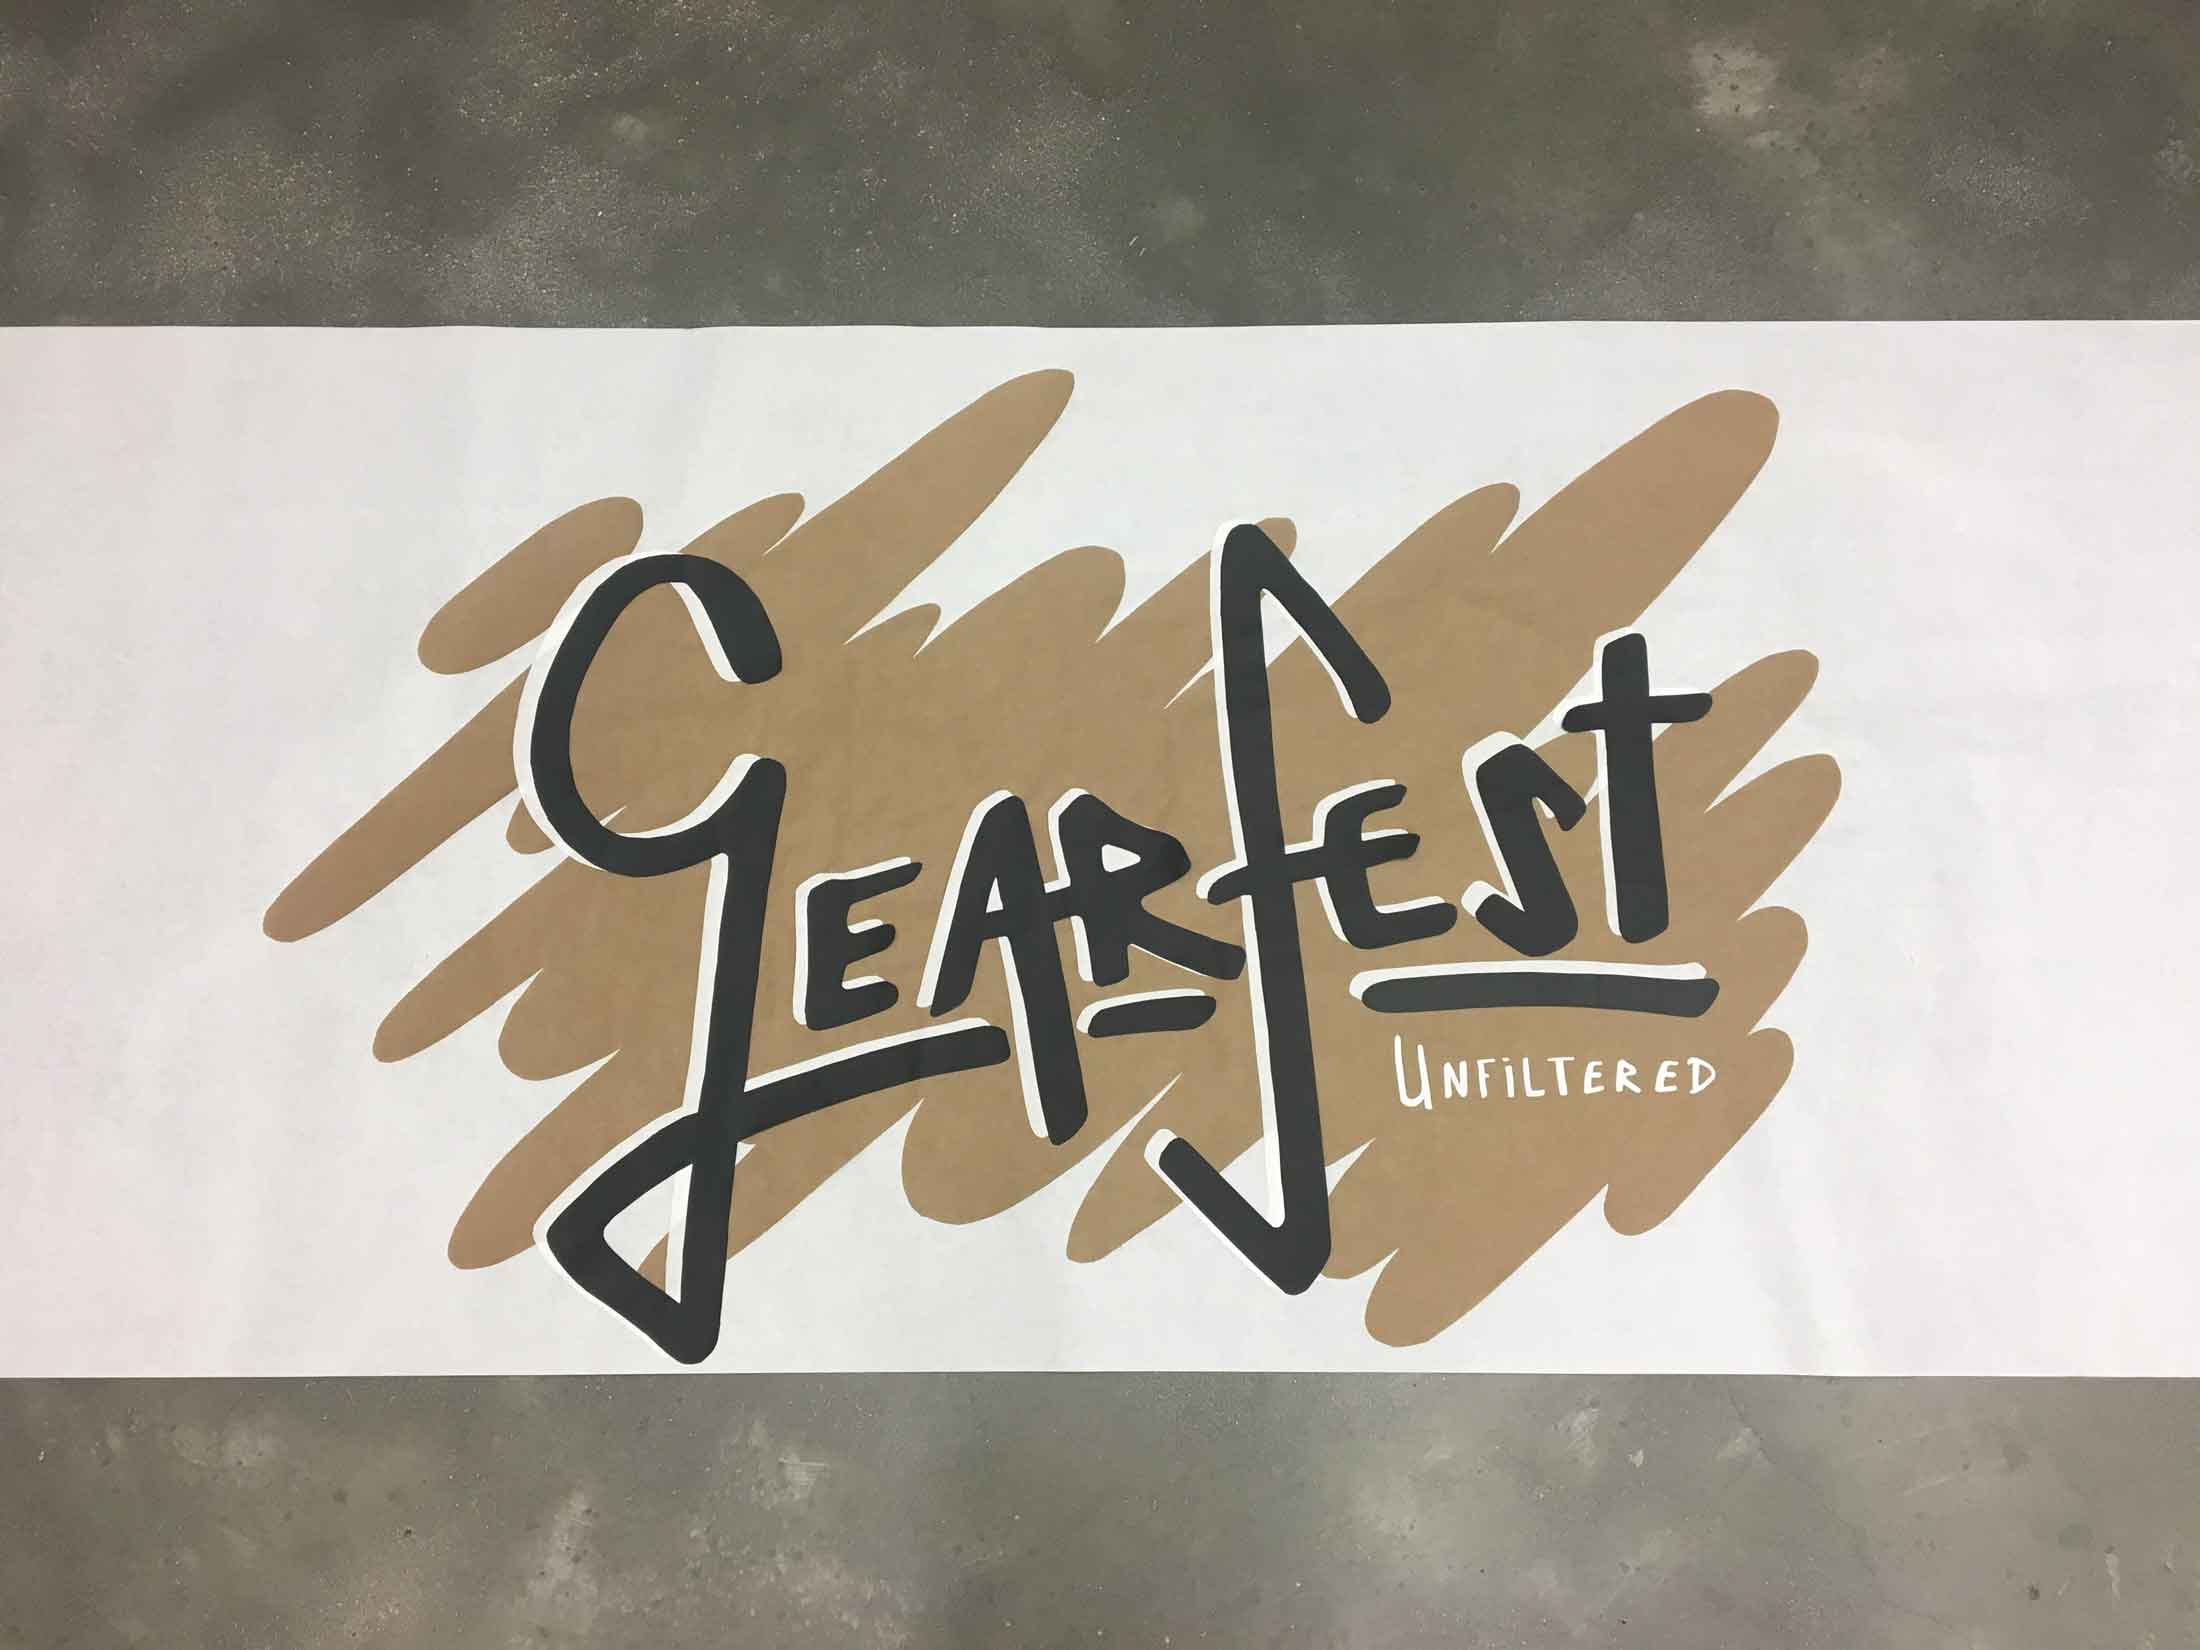 GEARFEST
UNFiLTERED